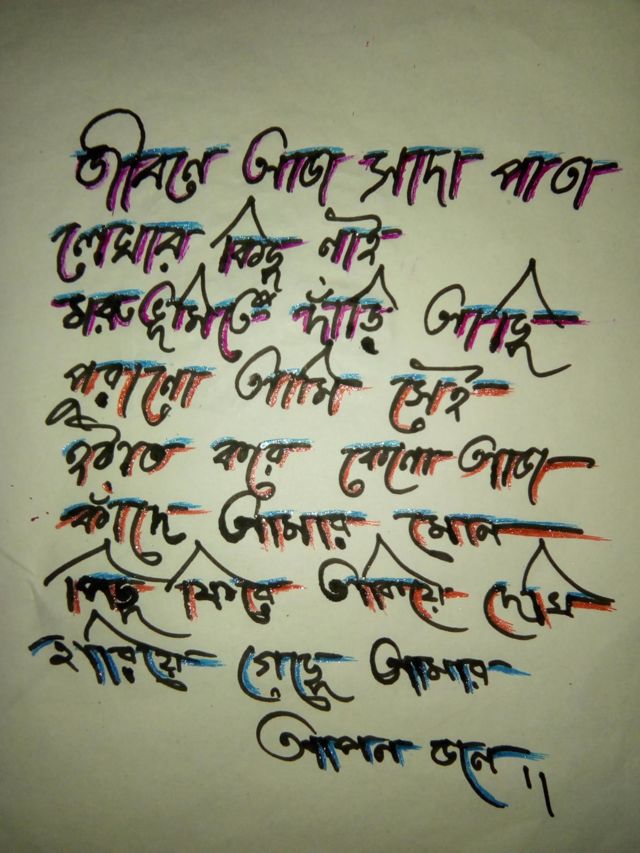 জীবনে আজ সাদা পাতা
লেখার কিছু নাই
মরুভূমিতে দাঁড়ি আছি
পুরানো আমি সেই
হঠাত করে কেনো আজ
কাঁদে আমার মোন
পিছু ফিরে তাকিয়ে দেখি
হারিয়ে গেছে আমার
আপন জনে॥